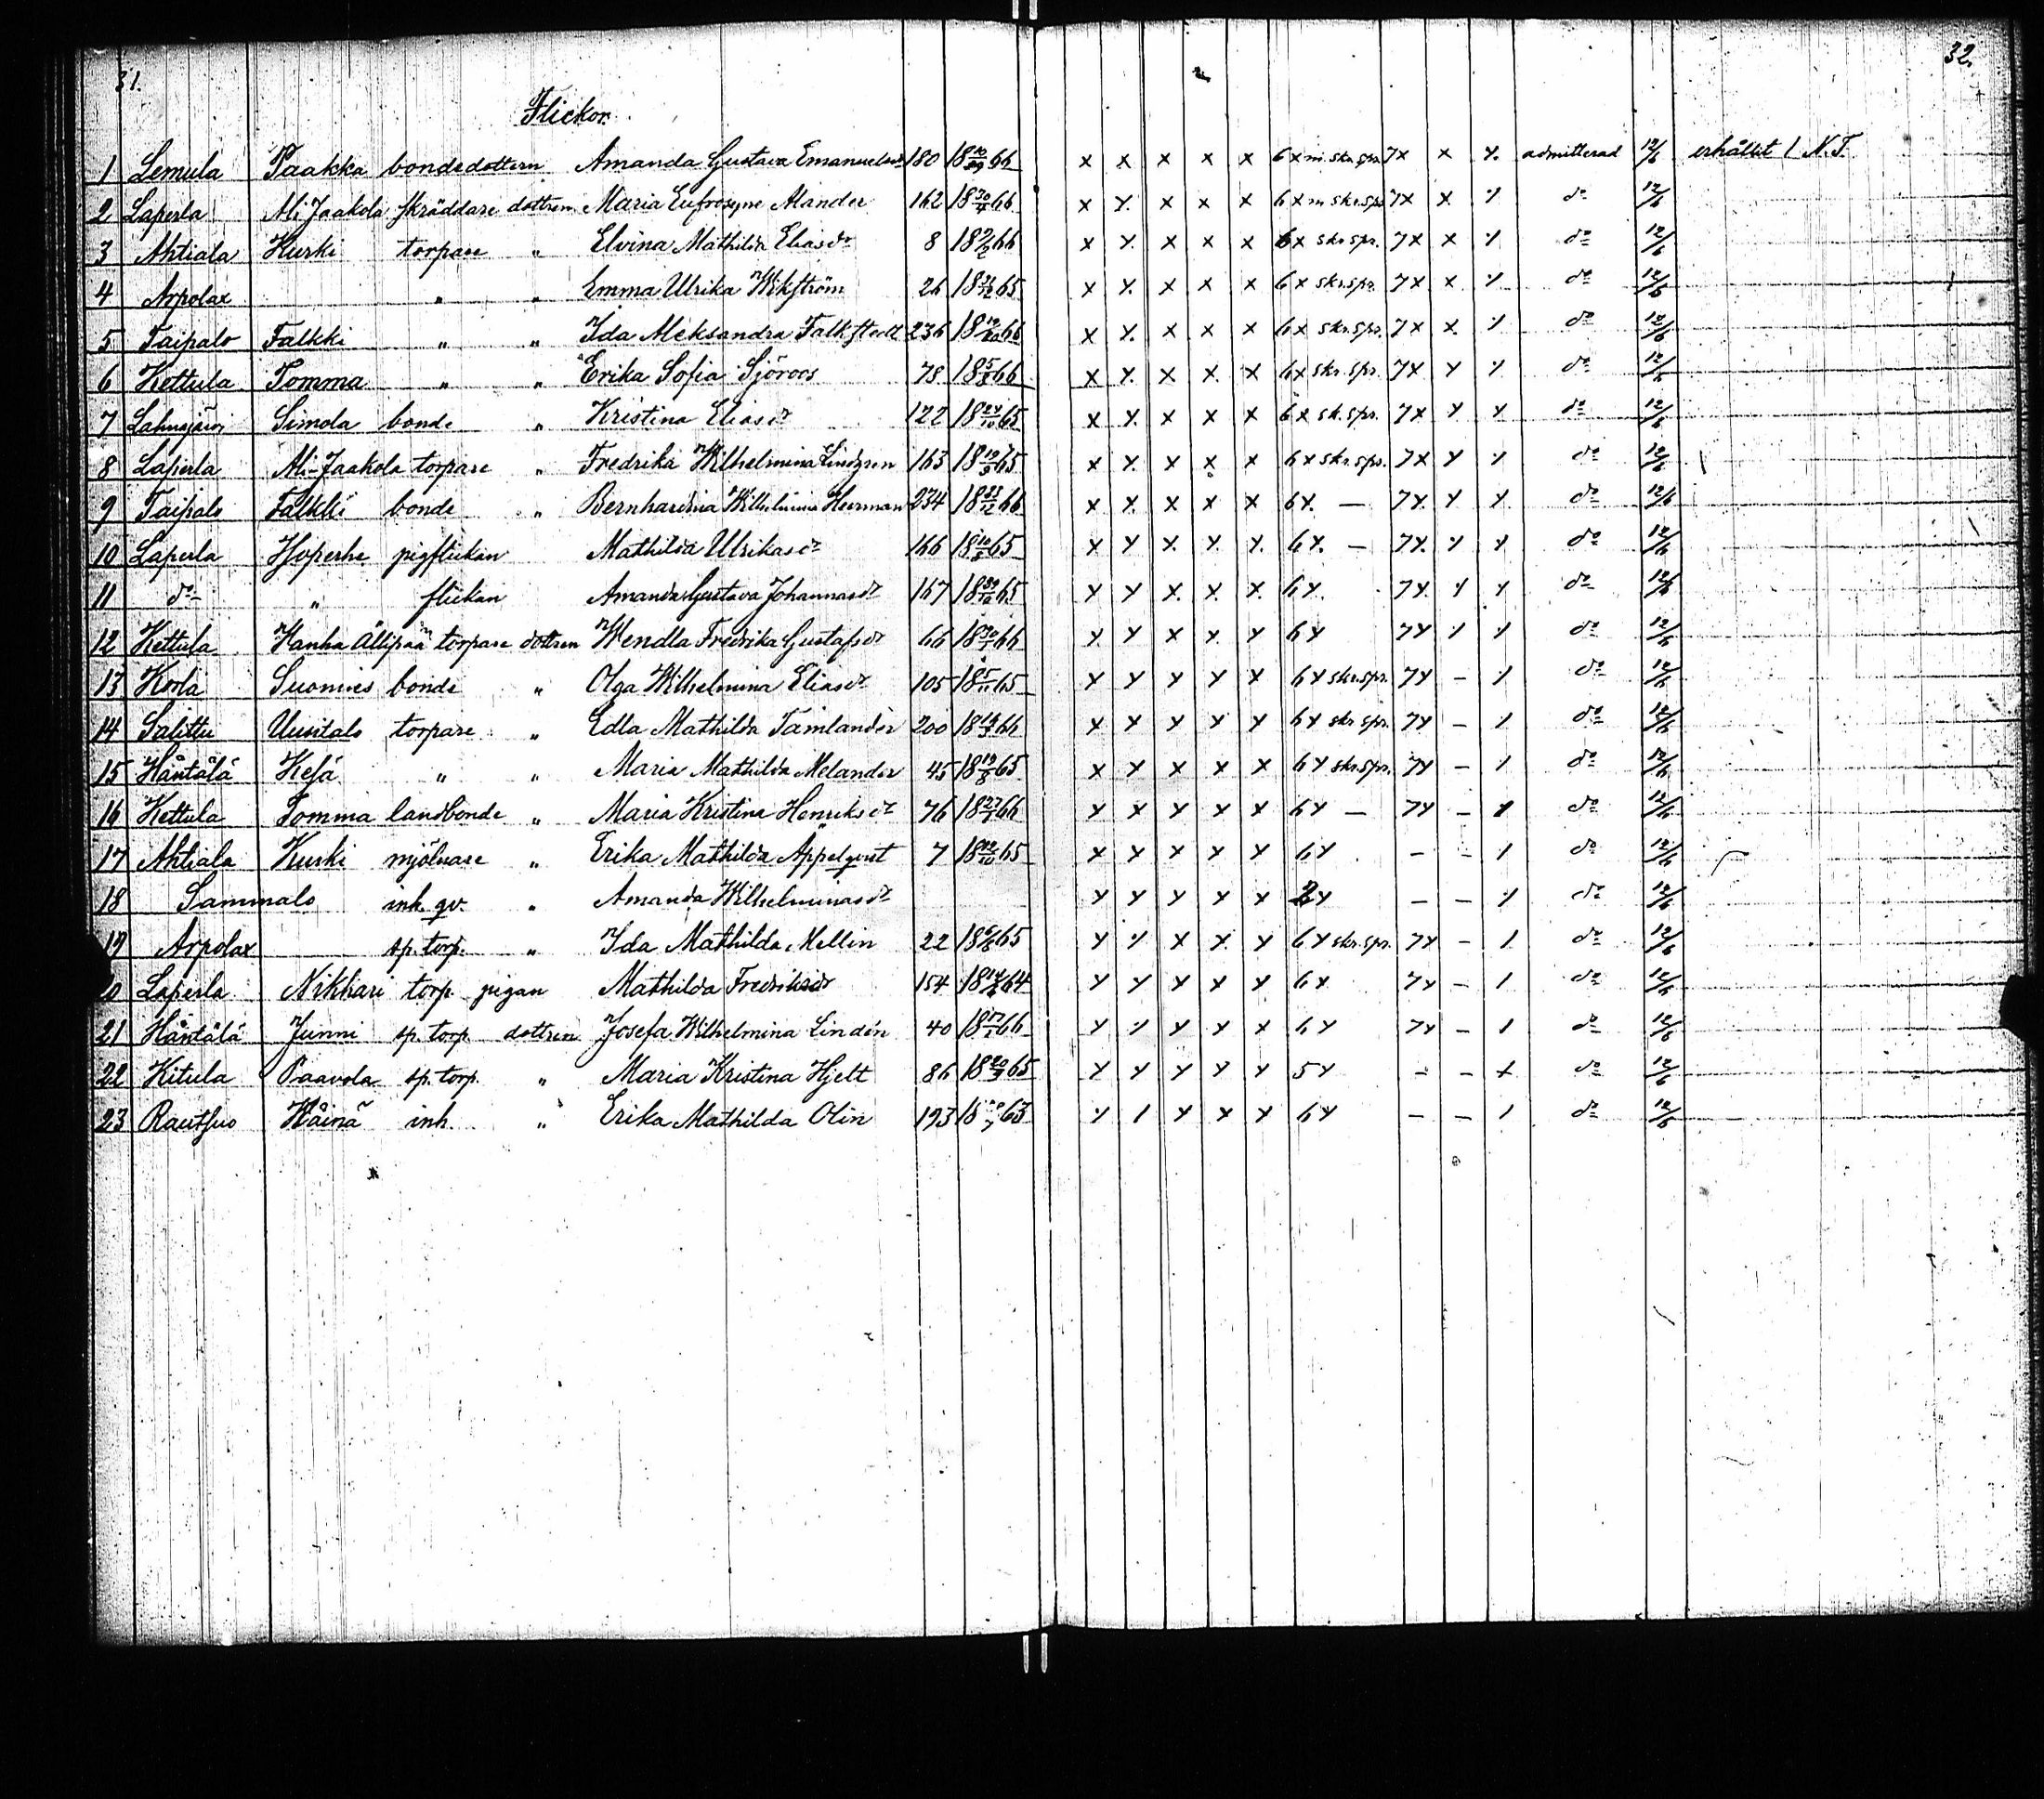 31.
32.
Flickor.
1 Lemula Paakka bondedottern Amanda Gustava Emanuelsdr 180 18 66 x x x x x 6x m. skr. spr. 7x x x admitterad 12/6 erhållit 1 N.T.
2 Laperla Ali Jaakola skräddare dottren Maria Eufrosyne Alander 162 18 66 x x x x x 6x m skr. spr 7x x x do 12/6
3 Ahtiala Kurki torpare " Elvina Mathilda Eliasdr 8 18 66 x x x x x 6x skr. spr. 7x x x do 12/6
4 Arpolax " " Emma Ulrika Wikström 26 18 65 x x x x x 6x skr. spr. 7x x x do 12/6
5 Taipalo Falkki " " Ida Aleksandra Falkstedt 236 18 66 x x x x x 6x skr. spr. 7x x x do 12/6
6 Kettula Tomma " " Erika Sofia Sjöroos 78 18 66 x x x x x 6x skr. spr. 7x x x do 12/6
7 Lahnajärvi Simola bonde " Kristina Eliasdr 122 18 24/10 65 x x x x x 6x sk. spr. 7x x x do 12/6
8 Laperla Ali-Jaakola torpare " Fredrika Wilhelmina Lindgren 163 18 65 x x x x x 6x skr. spr. 7x x x do 12/6
9 Taipalo Falkki bonde " Bernhardina Wilhelmina Heerman 234 18 66 x x x x x 6x. — 7x x x do 12/6
10 Laperla pigflickan Mathilda Ulrikasdr 166 18 65 x x x x x 6x. — 7x. x x do 12/6
11 do " flickan Amanda Gustava Johannasdr 167 18 65 x x x x x 6x. 7x. x x do 12/6
12 Kettula Wanha Ällipää torpare dottren Wendla Fredrika Gustafsdr 66 18 66 x x x x x 6x 7x x x do 12/6
13 Korla Suomies bonde " Olga Wilhelmina Eliasdr 105 18 65 x x x x x 6x skr. spr. 7x - x do 12/6
14 Salittu Uusitalo torpare " Edla Mathilda Tamlander 200 18 66 x x x x x 6x skr spr. 7x - x do 12/6
15 Häntälä Kesä " " Maria Mathilda Melander 45 18 65 x x x x x 6x skr. spr. 7x - x do 12/6
16 Kettula Tomma landbonde " Maria Kristina Henriksdr 76 18 66 x x x x x 6x — 7x - x do 12/6
17 Ahtiala Kurki mjölnare " Erika Mathilda Appelqvist 7 18 65 x x x x x 6x - - x do 12/6
18 Sammalo inh. qv. " Amanda Wilhelminasdr x x x x x 2x - - x do 12/6
19 Arpolax sp. torp. " Ida Mathilda Mellin 22 18 65 x x x x x 6x skr. spr. 7x - x do 12/6
Laperla Nikkari torp. pigan Mathilda Fredriksdr 154 18 64 x x x x x 6x 7x - x do 12/6
21 Häntälä Junni sp. torp. dottren Josefa Wilhelmina Lindén 40 18 66 x x x x x 6x 7x - x do 12/6
22 Kitula Paavola sp. torp. " Maria Kristina Hjelt 86 18 65 x x x x x 5x - - x do 12/6
23 Rautsuo inh. " Erika Mathilda Olin 193 18 63 x x x x x 6x - - x do 12/6